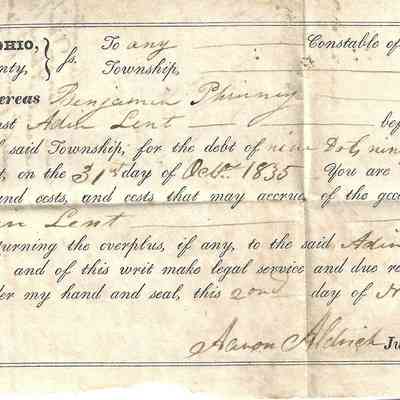 OHIO, } ss. To any Constable of
nty, Township,
ereas Benjamin Phinney
st Aden Lent bef
f said Township, for the debt of nine Dols nin
t, on the 31st day of Octr. 1835 You are
and costs, and costs that may accrue, of the goo
en Lent
turning the overplus, if any, to the said Aden
and of this writ make legal service and due re
der my hand and seal, this 2ond day of N
Aaron Aldrich Ju